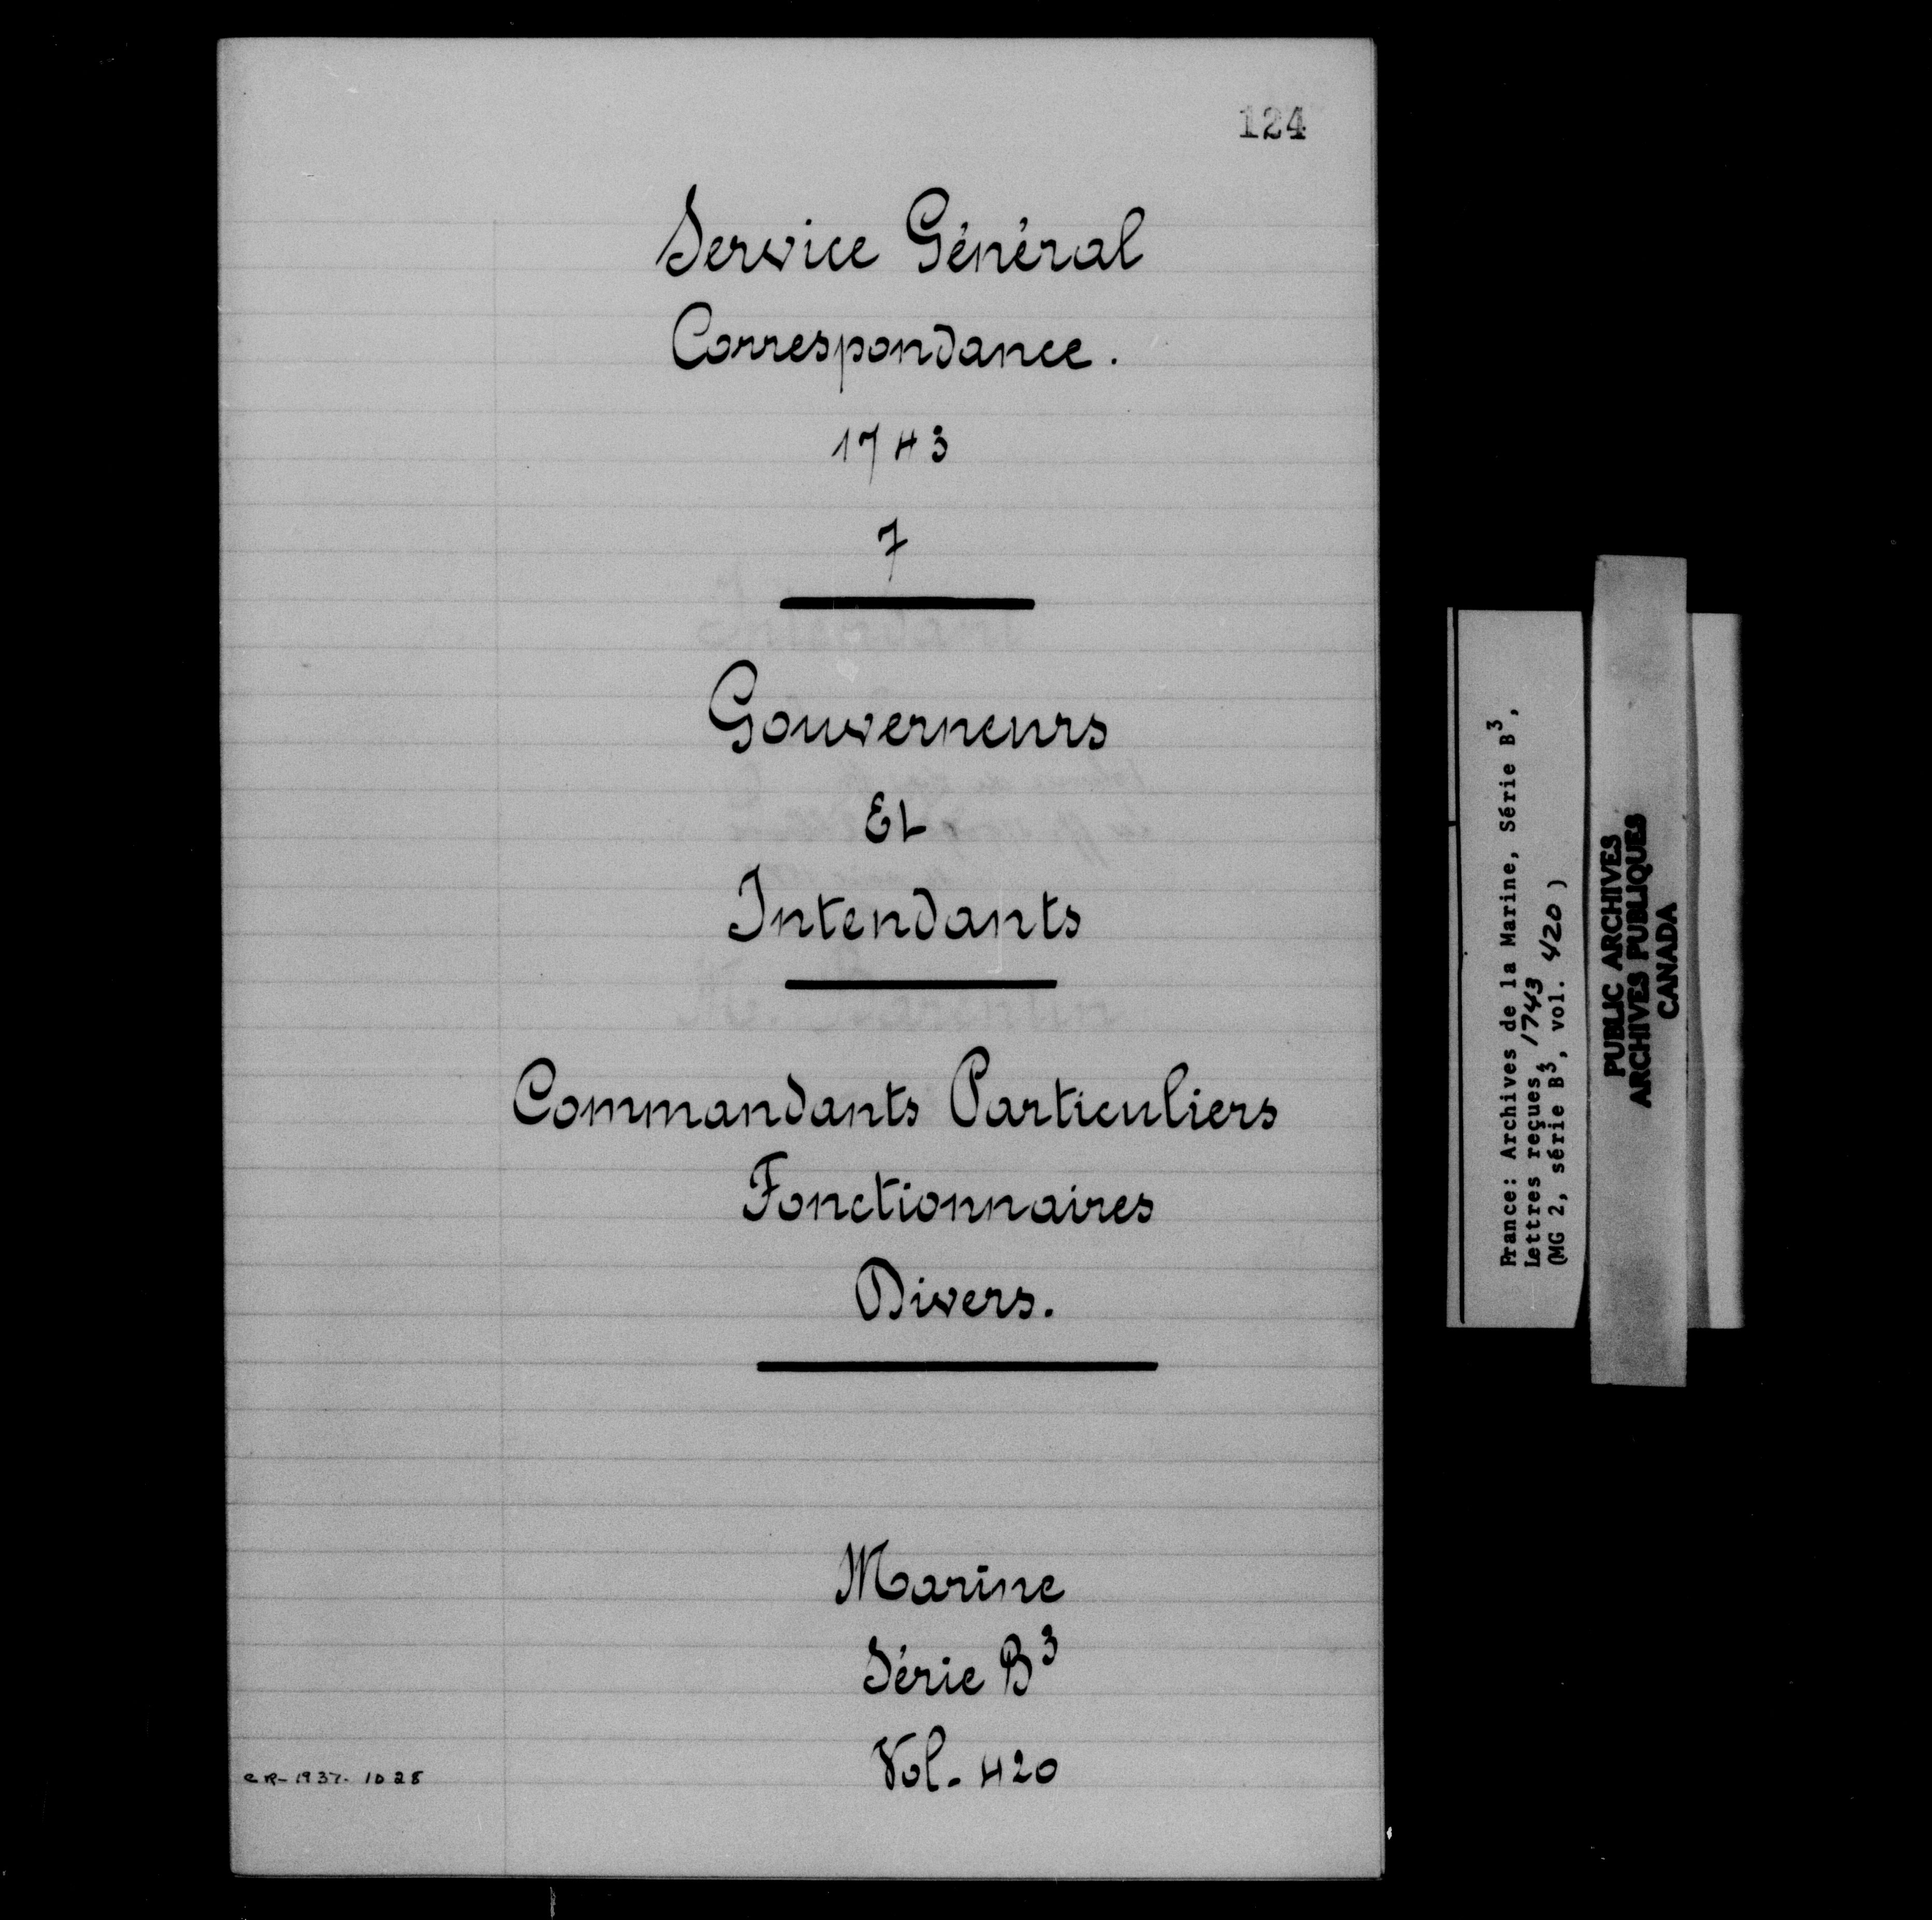 124
Service Général
Correspondance.
1743
7
Gouverneurs
Et
Intendants
Commandants Particuliers
Fonctionnaires
Divers.
Marine
Série B³
Vol. 420
CR-1937-1028
France: Archives de la Marine, Série B³,
Lettres reçues, 1743
(MG 2, série B³, vol. 420)
PUBLIC ARCHIVES
ARCHIVES PUBLIQUES
CANADA